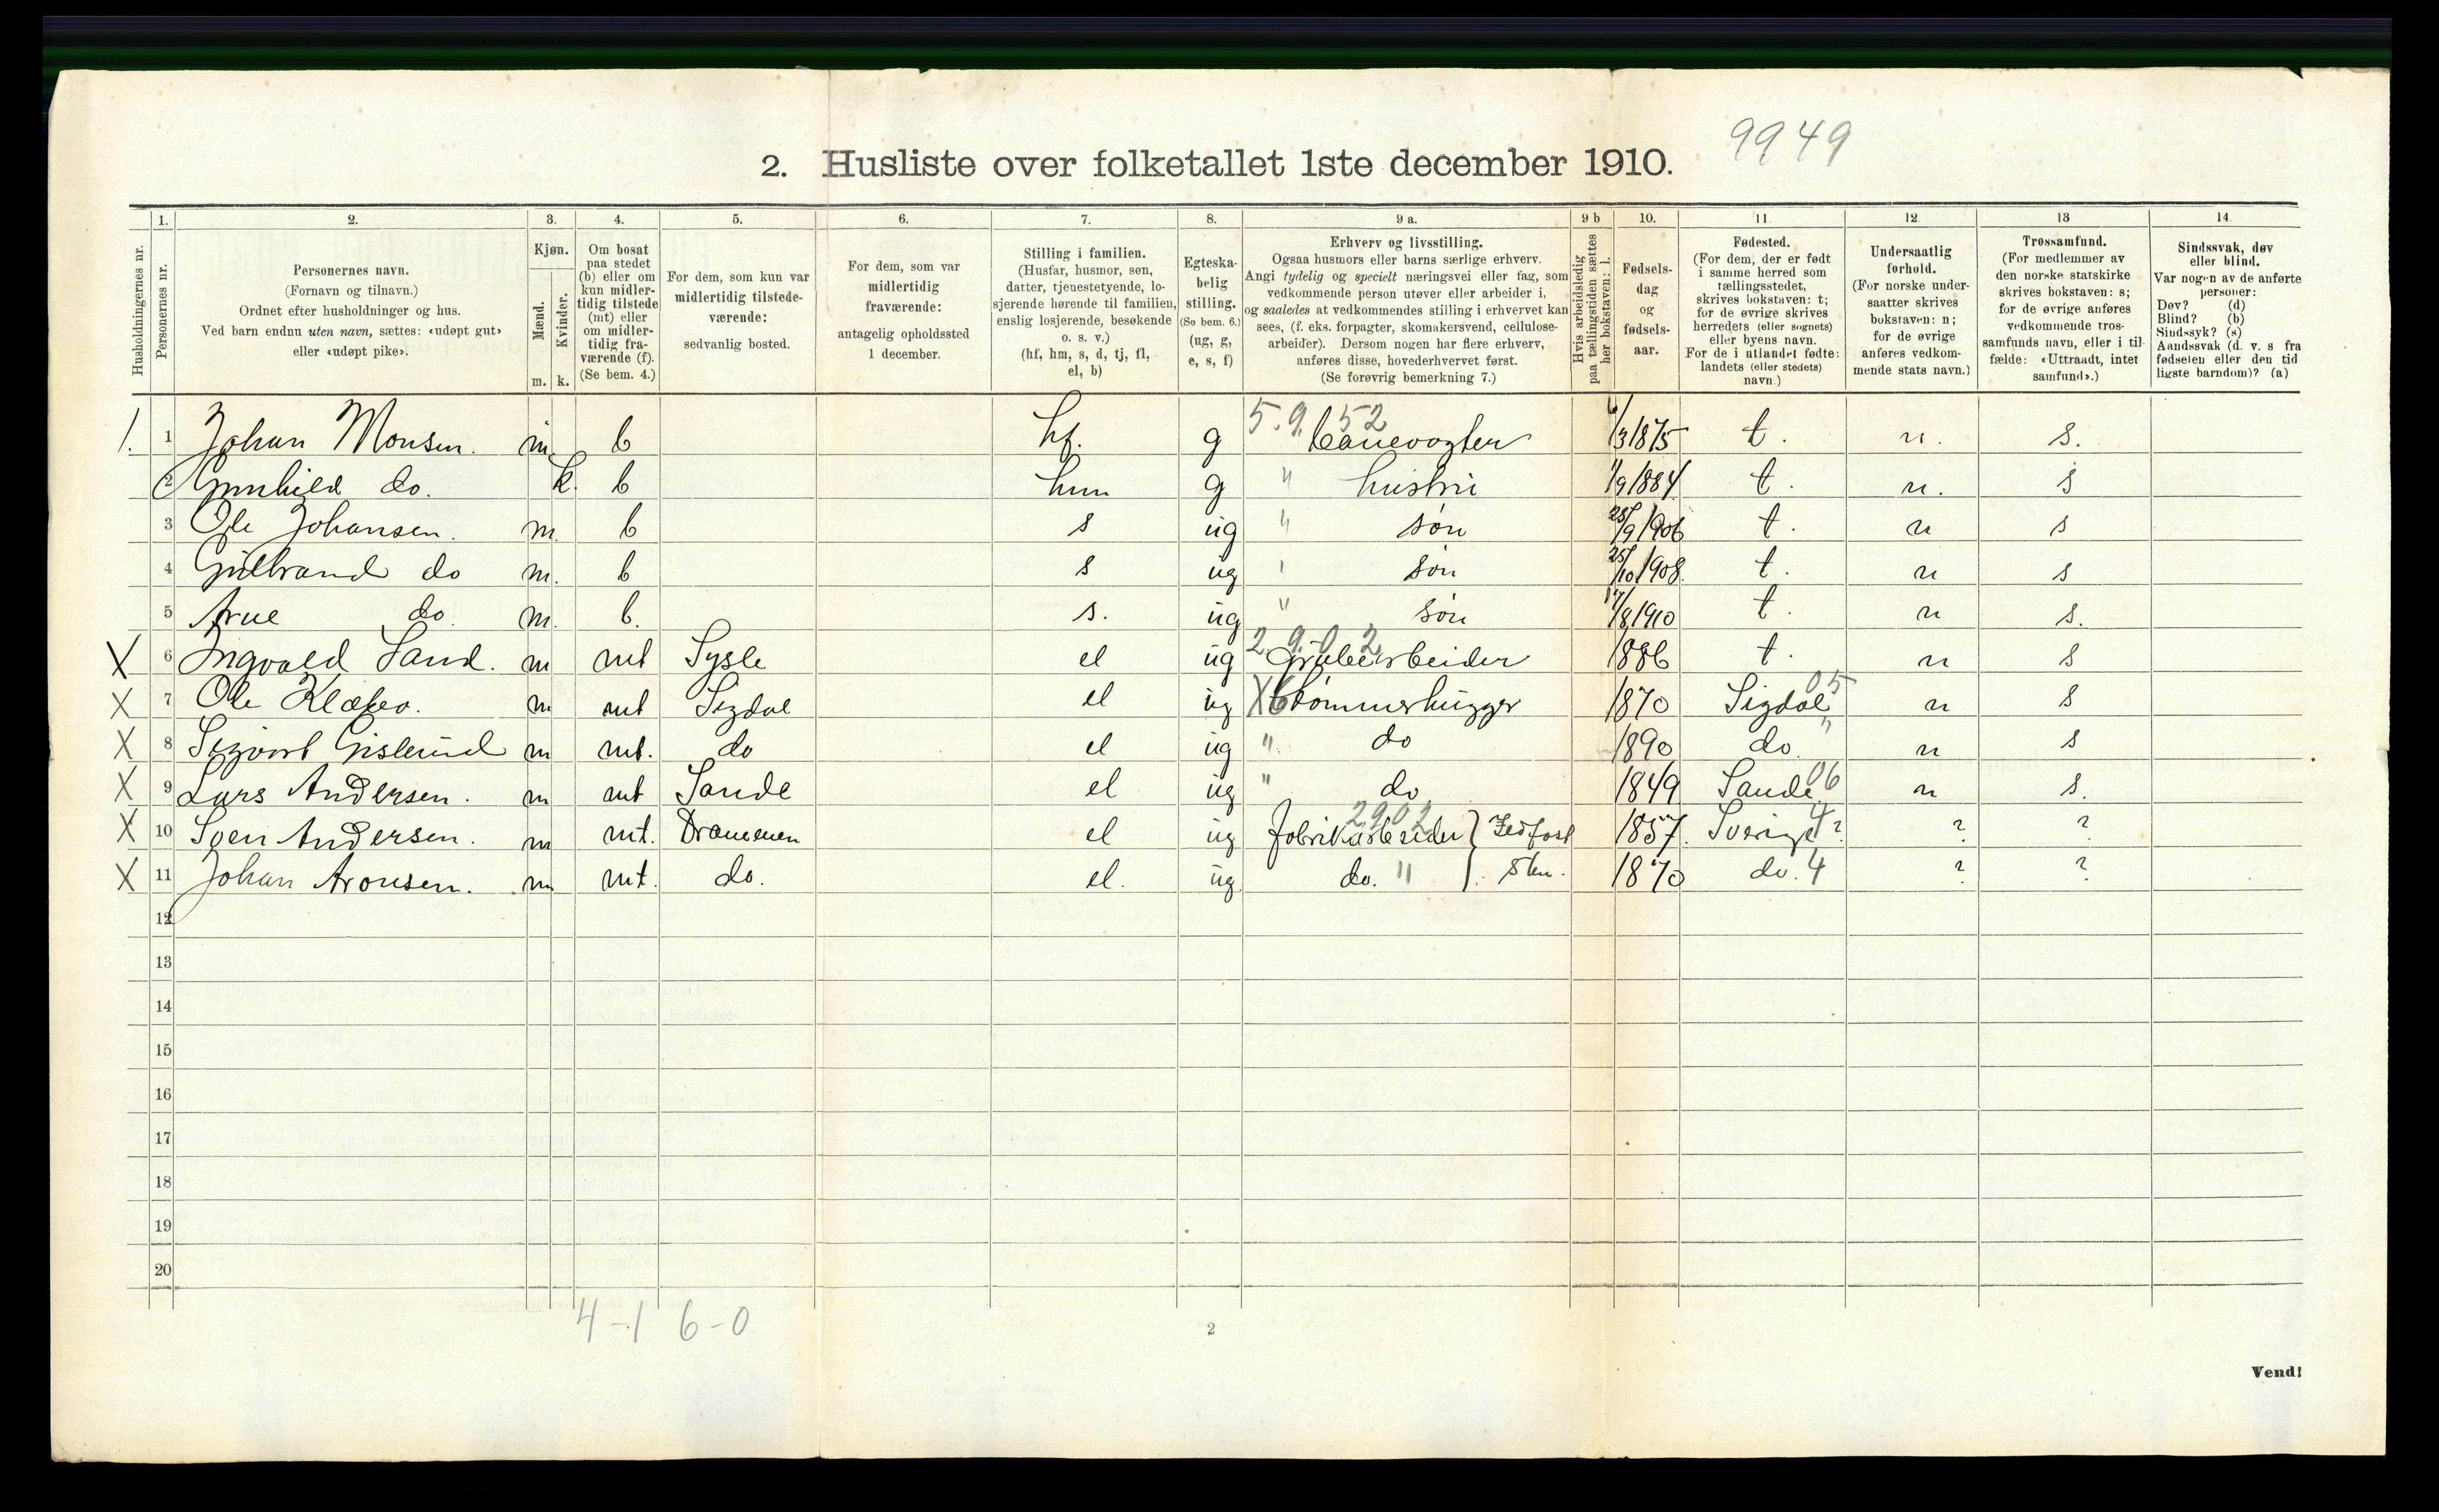 9949
2. Husliste over folketallet 1ste december 1910.
1. 2. 3. 4. 5. 6. 7. 8. 9 a. 9 b 10. 11. 12. 13 14.
Husholdningernes nr.
Personernes nr.
Personernes navn.
(Fornavn og tilnavn.)
Ordnet efter husholdninger og hus.
Ved barn endnu uten navn, sættes: «udøpt gut»
eller «udøpt pike».
Kjøn.
Mænd.
Kvinder.
m. k.
Om bosat
paa stedet
(b) eller om
kun midler-
tidig tilstede
(mt) eller
om midler-
tidig fra-
værende (f).
(Se bem. 4.)
For dem, som kun var
midlertidig tilstede-
værende:
sedvanlig bosted.
For dem, som var
midlertidig
fraværende:
antagelig opholdssted
1 december.
Stilling i familien.
(Husfar, husmor, søn,
datter, tjenestetyende, lo-
sjerende hørende til familien,
enslig losjerende, besøkende
o. s. v.)
(hf, hm, s, d, tj, fl,
el, b)
Egteska-
belig
stilling.
(Se bem. 6.)
(ug, g,
e, s, f)
Erhverv og livsstilling.
Ogsaa husmors eller barns særlige erhverv.
Angi tydelig og specielt næringsvei eller fag, som
vedkommende person utøver eller arbeider i,
og saaledes at vedkommendes stilling i erhvervet kan
sees, (f. eks. forpagter, skomakersvend, cellulose-
arbeider). Dersom nogen har flere erhverv,
anføres disse, hovederhvervet først.
(Se forøvrig bemerkning 7.)
Hvis arbeidsledig
paa tællingstiden sættes
her bokstaven: l.
Fødsels-
dag
og
fødsels-
aar.
Fødested.
(For dem, der er født
i samme herred som
tællingsstedet,
skrives bokstaven: t;
for de øvrige skrives
herredets (eller sognets)
eller byens navn.
For de i utlandet fødte:
landets (eller stedets)
navn.)
Undersaatlig
forhold.
(For norske under-
saatter skrives
bokstaven: n;
for de øvrige
anføres vedkom-
mende stats navn.)
Trossamfund.
(For medlemmer av
den norske statskirke
skrives bokstaven: s;
for de øvrige anføres
vedkommende tros-
samfunds navn, eller i til-
fælde: «Uttraadt, intet
samfund».)
Sindssvak, døv
eller blind.
Var nogen av de anførte
personer:
Døv? (d)
Blind? (b)
Sindssyk? (s)
Aandssvak (d. v. s fra
fødselen eller den tid
ligste barndom)? (a)
1. 1 Johan Monsen. m. b hf. g 5.9.52 banevogter /3 1875 t. n. s.
2 Gunhild do. k. b hm g " hustru /9 1884 t. n. s
3 Ole Johansen. m. b s ug " søn 28/9 1906 t. n s
4 Gulbrand do m. b s ug " søn 25/10 1908. t. n s
5 Arne do. m. b. s. ug " søn 17/8 1910 t. n s.
X 6 Ingvald Sand. m mt Sysle el ug 2.9.02 Grubearbeider 1886 t. n s
X 7 Ole m mt Sigdal el ug X6 tømmerhugger 1870 Sigdal 05 n s
X 8 m mt. do el ug " do 1890 do. " n s
X 9 Lars Andersen. m mt Sande el ug " do 1849 Sande 06 n s.
X 10 Sven Andersen. m mt. Drammen el ug 2902 fabrikarbeider } 1857. Sverige 4 ? ? ?
X 11 Johan Aronsen. m mt. do. el. ug do. " } 1870 do. 4 ? ?
12
13
14
15
16
17
18
19
20
4-1 6-0
2
Vend!